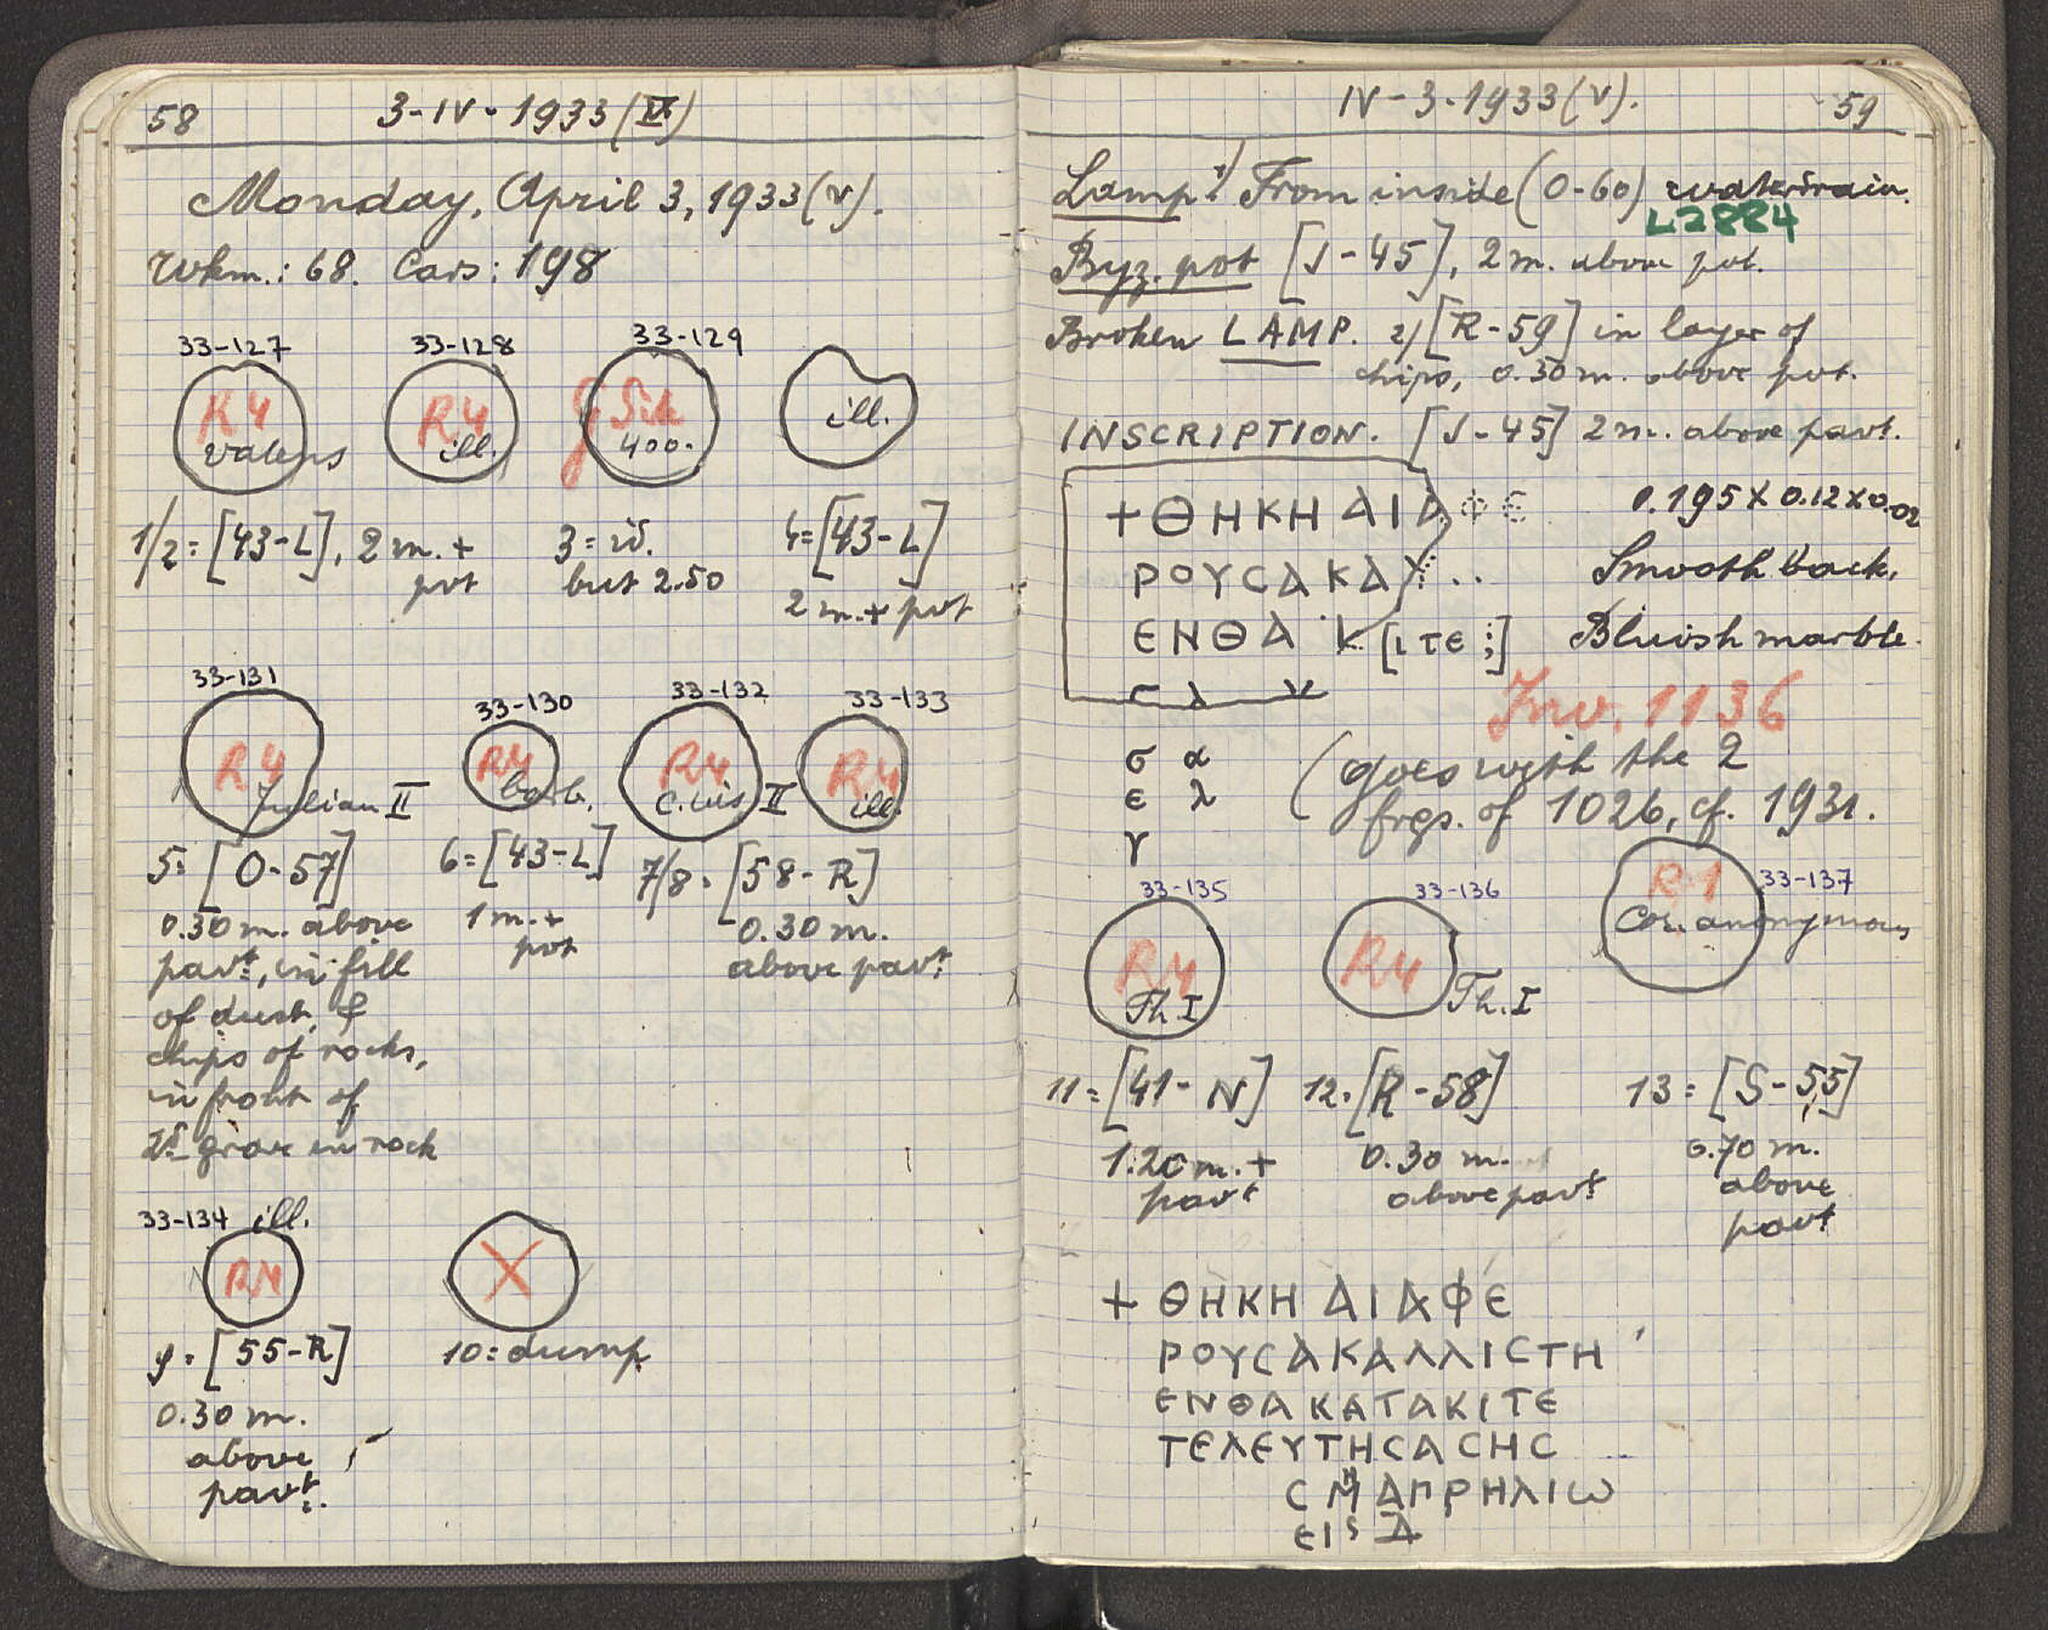 58 3-IV-1933 (V)
Monday, April 3, 1933 (V).
Wkm.: 68. Cars: 198
33-127 33-128 33-129
R4 R4 G Sik
Valens ill. 400. ill.
1/2 = [43-L], 2 m. + 3 = id. 4 = [43-L]
pvt but 2.50
2 m. + pvt
33-131 33-130 33-132 33-133
R4 R4 R4 R4
Julian II barb. C. vis II ill.
5 = [O-57] 6 = [43-L] 7/8 = [58-R]
0.30 m. above 1 m. + 0.30 m.
pavt, in fill pvt above pavt
of dust, &
chips of rocks,
in front of
grave in rock
33-134 ill.
R4 X
9 = [55-R] 10 = dump
0.30 m.
above
pavt.
IV-3-1933 (V). 59
Lamp 1) From inside (O-60) waterdrain.
L2884
Byz. pot [J-45], 2 m. above pvt.
Broken LAMP. 2) [R-59] in layer of
chips, 0.30 m. above pvt.
INSCRIPTION. [J-45] 2 m. above pavt.
+ ΘΗΚΗ ΔΙΑΦΕ 0.195 X 0.12 X 0.02
ΡΟΥCΑ ΚΑΛ.. Smooth back.
ΕΝΘΑ Κ [ΙΤΕ ⋮] Bluish marble.
Inv. 1136
σ α (goes with the 2
ε λ frgs. of 1026, cf. 1931.
γ
33-135 33-136 33-137
R4 R4 R1
Th. I Th. I Cor. anonymous
11 = [41-N] 12 = [R-58] 13 = [S-55]
1.20 m. + 0.30 m. 0.70 m.
pavt above pavt above
pavt
+ ΘΗΚΗ ΔΙΑΦΕ
ΡΟΥCΑ ΚΑΛΛΙCΤΗ
ΕΝΘΑ ΚΑΤΑΚΙΤΕ
ΤΕΛΕΥΤΗCΑCΗC
C ΜΗ ΑΠΡΗΛΙω
ΕΙS Δ